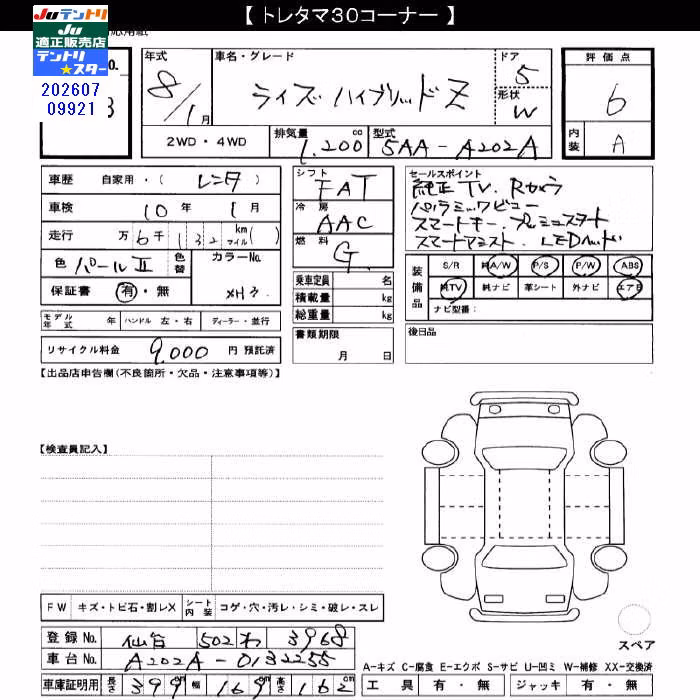 【 トレタマ30コーナー 】
Juテントリ
Ju
適正販売店
テントリ
★スター
202607
09921
No.
3
年式
8/1月
車名・グレード
ライズ ハイブリッド Z
ドア
5
形状
W
評価点
6
内装
A
2WD・4WD
排気量
1,200 cc
型式
5AA-A202A
車歴 自家用・( レンタ )
車検 10年 1月
走行 万 6千 132 km マイル( )
色 パールⅡ 色替
カラーNo.
保証書 有・無
シフト
FAT
冷房
AAC
燃料
G
乗車定員 名
積載量 kg
総重量 kg
書類期限
月 日
セールスポイント
純正TV. Rカメラ
パノラミックビュー
スマートキー. プッシュスタート
スマートアシスト. LEDヘッド
装備品
S/R 純A/W P/S P/W ABS
純TV 純ナビ 革シート 外ナビ エアB
ナビ型番:
後日品
モデル年式 年 ハンドル 左・右 ディーラー・並行
リサイクル料金 9,000 円 預託済
【出品店申告欄(不良箇所・欠品・注意事項等)】
【検査員記入】
FW キズ・トビ石・割レX シート内装 コゲ・穴・汚レ・シミ・破レ・スレ
登録No. 仙台 502 わ 3968
車台No. A202A-0132255
車庫証明用 長さ 399 幅 169 高さ 162
スペア
A-キズ C-腐食 E-エクボ S-サビ U-凹ミ W-補修 XX-交換済
工具 有・無 ジャッキ 有・無